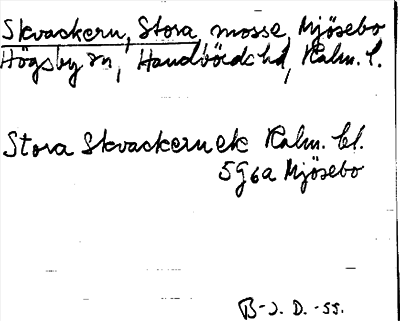 Skvackern, Stora mosse, Mjösebo
Högsby sn, Handbörds hd, Kalm. l.
Stora Skvackern ek Kalm. bl.
5g6a Mjösebo
B-J. D. -55.